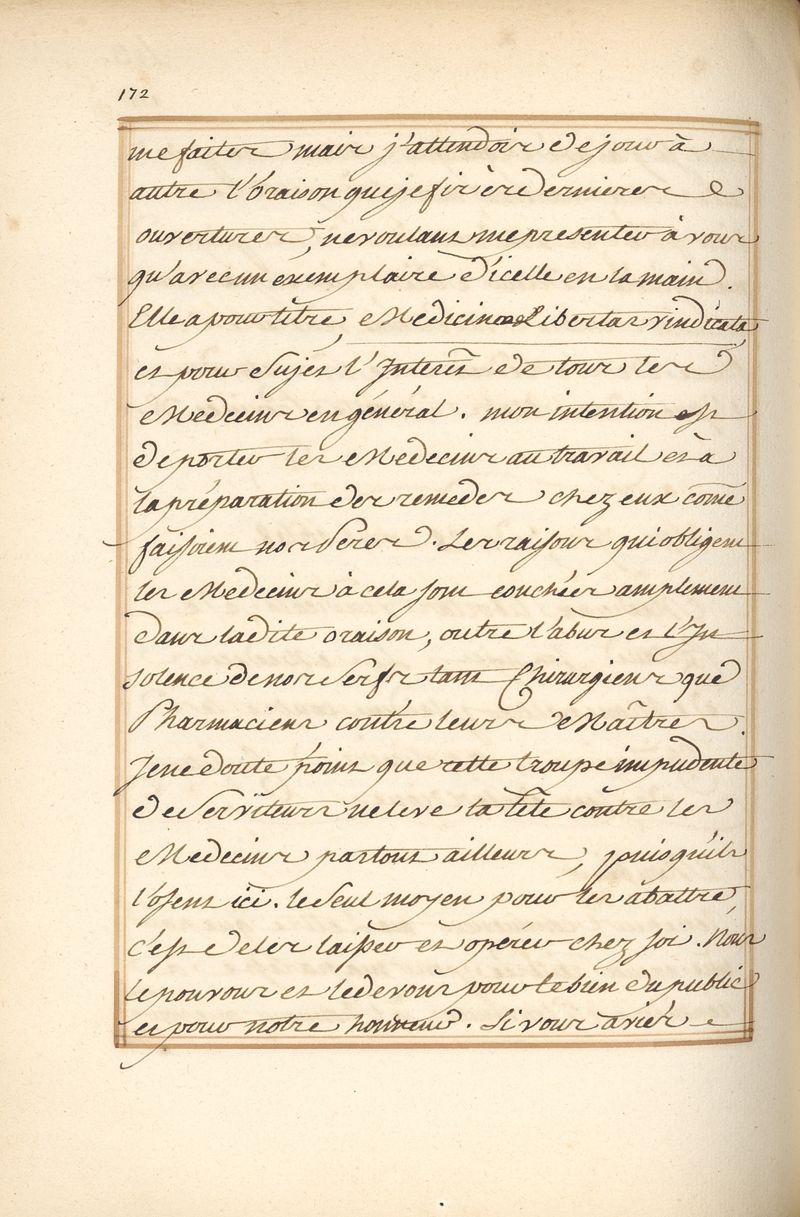 172
me faites mais j'attendois de jour à
autre l'oraison que je fis ès dernieres
ouvertures, ne voulant me presenter à vous
qu'avec un éxemplaire d'icelle en la main.
Elle a pour titre, Medicinæ Libertas vindicata,
et pour Sujet l'Interêt de tous les
Medecins en général. mon intention est
de porter les Medecins au travail et à
la préparation des remedes chez eux cõme
faisoient nos Peres. Les raisons qui obligent
les Medecins à cela sont couchées amplement
dans ladite oraison, outre l'abus et l'In-
solence de nos Serfs tant Chirurgiens que
Pharmaciens contre leurs Maîtres.
Je ne doute point que cette troupe impudente
de Serviteurs ne leve la tête contre les
Medecins partout ailleurs, puisqu'ils
l'osent ici. le Seul moyen pour les abattre,
c'est de les laisser et opérer chez soi. Nous
le pouvons et le devons pour le bien du public
et pour notre honneur. Si vous aviés